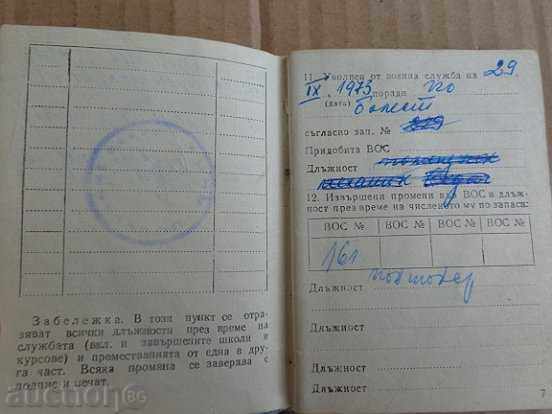 Забележка. В този пункт се отра-
зяват всички длъжности през време на
службата (вкл. и завършените школи и
курсове) и преместванията от една в дру-
га част. Всяка промяна се заверява с
подпис и печат.
11. Уволнен от военна служба на 29.
IX. 1973 поради по
(дата) болест
съгласно зап. №
Придобита ВОС
Длъжност
12. Извършени промени във ВОС и длъж-
ност през време на численето му по запаса:
ВОС № ВОС № ВОС № ВОС №
161
Длъжност
Длъжност
Длъжност
Длъжност
7
aukcion.bg